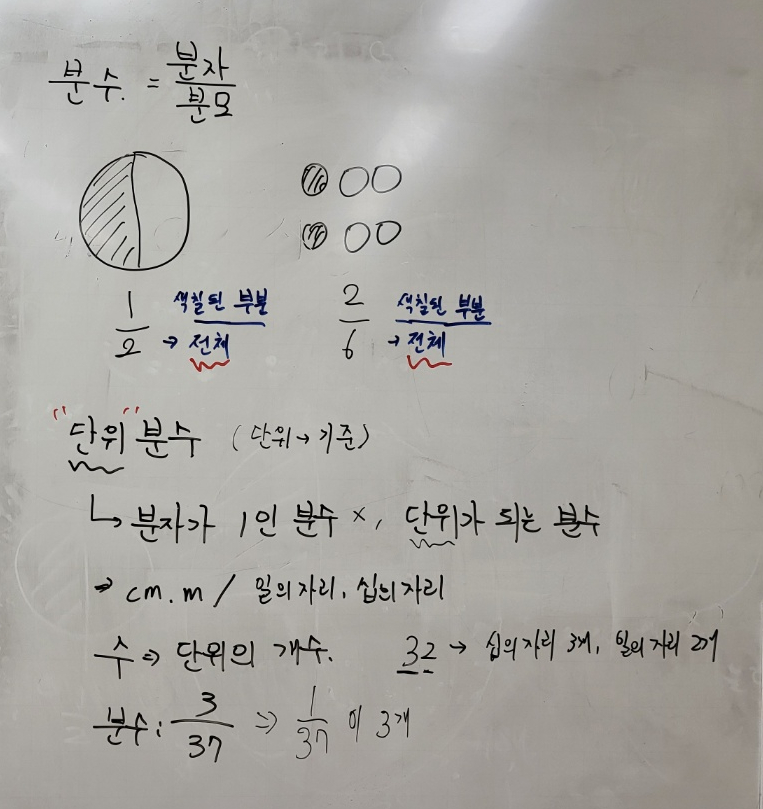 분수. = 분자/분모
1/2 → 색칠된 부분/전체
2/6 → 색칠된 부분/전체
"단위" 분수 (단위→기준)
↳ 분자가 1인 분수 ×, 단위가 되는 분수
⇒ cm. m / 일의 자리, 십의 자리
수 ⇒ 단위의 개수. 32 → 십의 자리 3개, 일의 자리 2개
분수: 3/37 ⇒ 1/37 이 3개